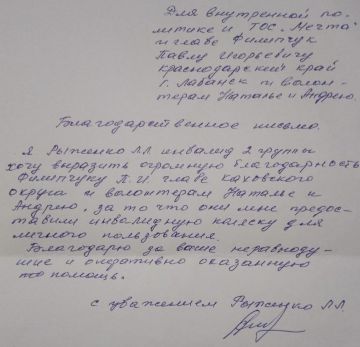 Для внутренной по-
литике и ТОС. "Мечта"
и главе Филипчук
Павлу Игорьевичу
Краснодарский край
г. Лабинск и волон-
терам Наталье и Андрею.
Благодарственное письмо.
Я Рыженко Л.Л инвалид 2 группы
хочу выразить огромную благодарность
Филипчуку П.И. главе Каховского
округа и волонтерам Наталье и
Андрею, за то что они мне предос-
тавили инвалидную каляску для
личного пользования.
Благодарю за ваше неравноду-
шие и оперативно оказанную
помощь.
С уважением Рыженко Л.Л.